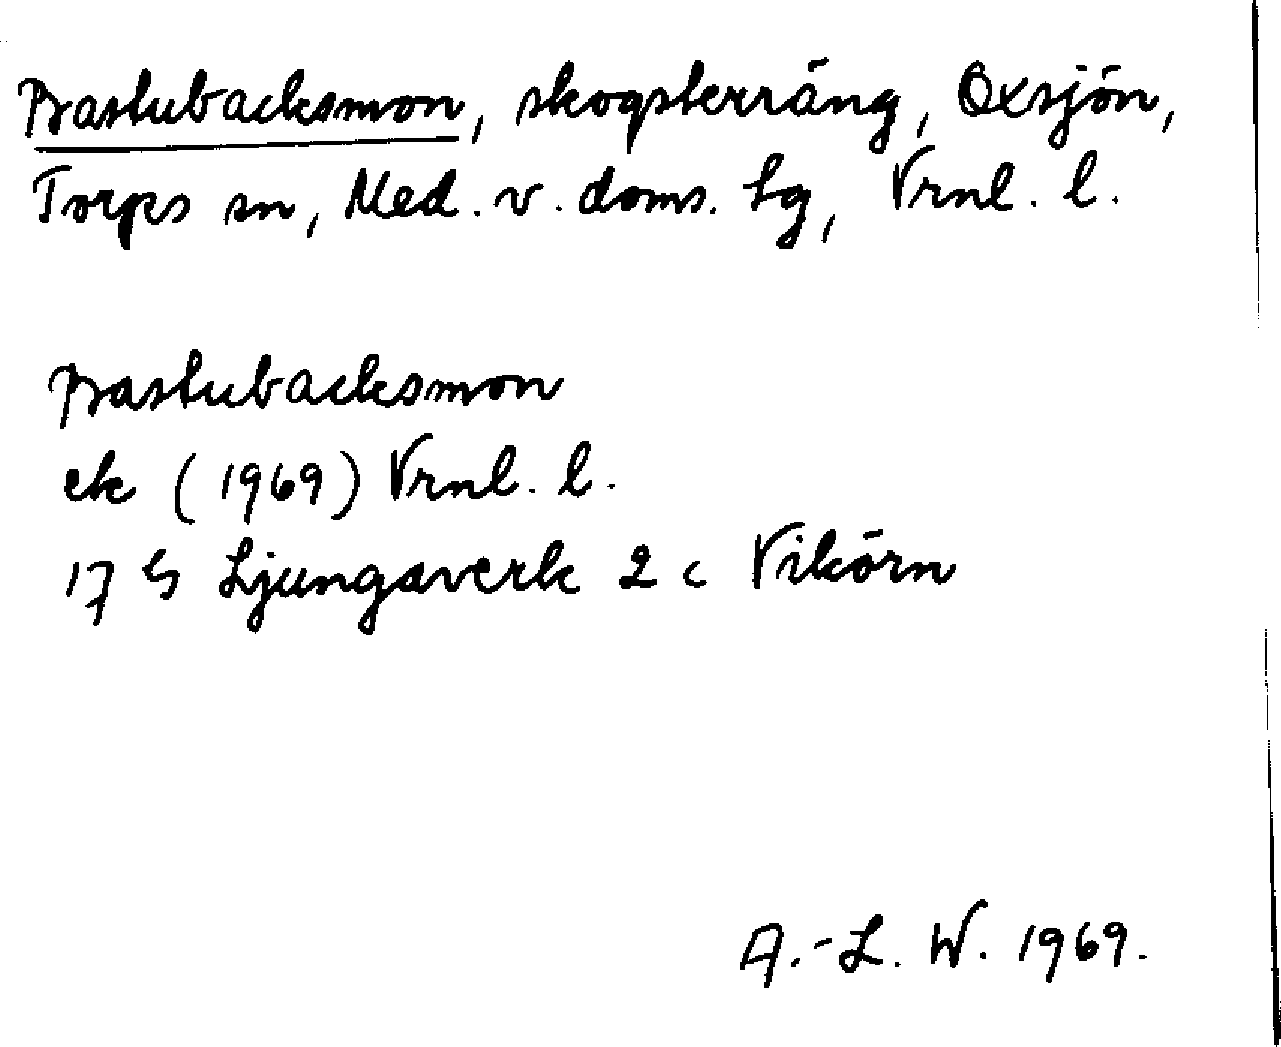 Bastubacksmon, skogsterräng, Oxsjön,
Torps sn, Med. v. doms. lg, Vrnl. l.
Bastubacksmon
ek (1969) Vrnl. l.
17 G Ljungaverk 2 c Vikörn
A.-L. W. 1969.